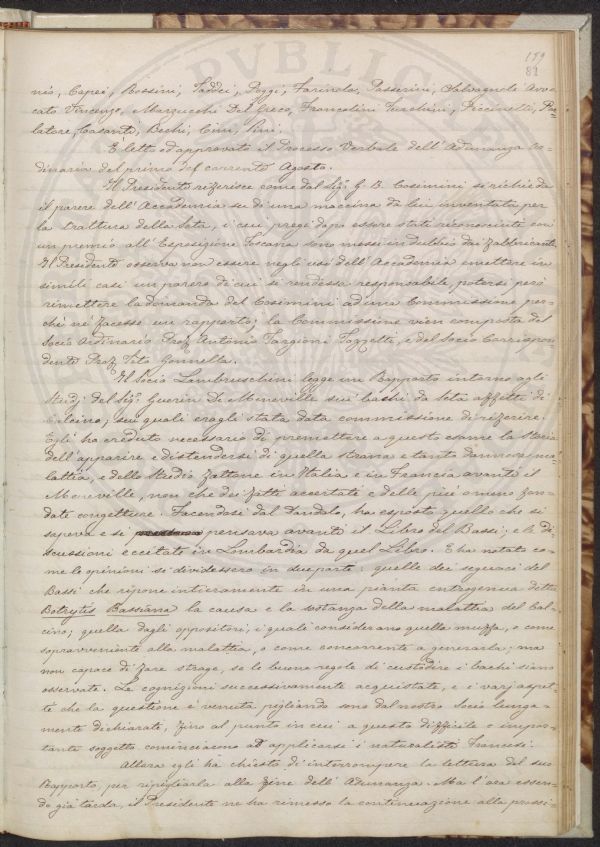 159
81
nis, Capei, Rossini, Taddei, Poggi, Farinola, Passerini, Salvagnoli Avvo
cato Vincenzo, Marzucchi Del Greco, Francolini Turchini, Piccinetti,
latore, Casanti, Bechi, Cini,
È letto ed approvato il Processo Verbale dell'Adunanza or-
dinaria del primo del corrente Agosto.
Il Presidente riferisce come dal Sig. G. B. Cosimini si richieda
il parere dell'Accademia su di una maccina da lui inventata per
la trattura della Seta, i cui pregi dopo essere stati riconosciuti con
un premio all'Esposizione Toscana sono messi in dubbio dai fabbricanti.
Il Presidente osserva non essere negli usi dell'Accademia emettere in
simili casi un parere di cui si rendesse responsabile, potersi però
rimettere la domanda del Cosimini ad una Commissione per-
chè ne facesse un rapporto; la Commissione vien composta del
Socio Ordinario Prof. Antonio Targioni Tozzetti, e del Socio Corrispon
dente Prof. Vito Gonnella.
Il Socio Lambruschini legge un Rapporto intorno agli
Studj del Sig. Guerin de Meneville sui bachi da Seta affetti di
Calcino; sui quali eragli stata data commissione di riferire;
Egli ha creduto necessario di premettere a questo esame la Storia
dell'apparire e distendersi di quella strana e tanto dannosa ma-
lattia, e dello Studio fattone in Italia e in Francia avanti il
Meneville, non che dei fatti accertati e delle più o meno fon-
date congetture. Facendosi dal Dandolo, ha esposto quello che si
sapeva e si pensava avanti il Libro del Bassi; e le di-
scussioni eccitate in Lombardia da quel Libro. E ha notato co-
me le opinioni si dividessero in due parti: quelle dei seguaci del
Bassi che ripone intieramente in una pianta entrogenea detta
Botrytis Bassiana la causa e la sostanza della malattia del Cal-
cino; quella degli oppositori, i quali considerano quella muffa, o come
sopravveniente alla malattia, o come concorrente a generarla; ma
non capace di fare strage, se le buone regole di custodire i bachi siano
osservate. Le cognizioni successivamente acquistate, e i varj aspet-
ti che la questione è venuta pigliando sono dal nostro Socio lunga-
mente dichiarati, fino al punto in cui a questo difficile e impor-
tante soggetto cominciarono ad applicarsi i naturalisti Francesi.
Allora egli ha chiesto di interrompere la lettura del suo
Rapporto, per ripigliarla alla fine dell'Adunanza. Ma l'ora essen-
do già tarda, il Presidente ne ha rimesso la continuazione alla prossi-